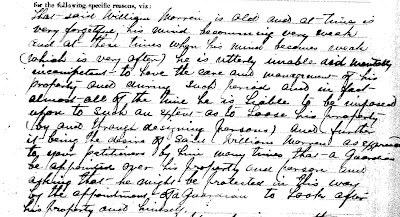 for the following specific reasons, viz:
that said William Morren is old and at times is
very forgetful, his mind becomming very weak
and at these times when his mind becomes weak
(which is very often) he is utterly unable and mentally
incompetent to have the care and management of his
property and during such period and in fact
almost all of the time he is liable to be imposed
upon to such an extent as to loose his property
(by and through designing persons) and further
it being the desire of said William Morren as expressed
to your petitioners by him many times that a Guardian
be appointed over his property and person and
asking that he might be protected in this way
by the appointment of a Guardian to look after
his property and himself